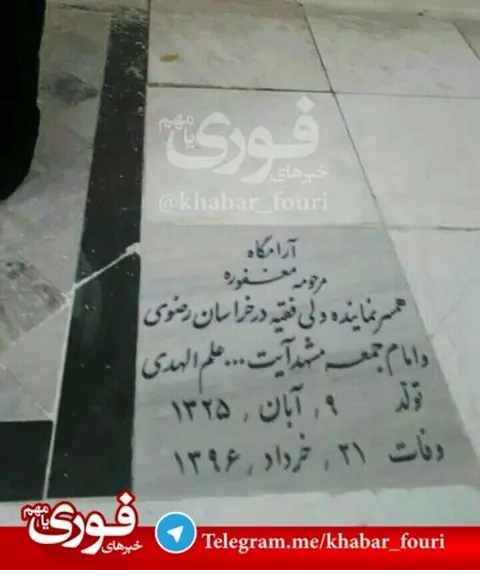 فوری
یا مهم
خبرهای
@khabar_fouri
آرامگاه
مرحومه مغفوره
همسر نماینده ولی فقیه در خراسان رضوی
و امام جمعه مشهد آیت... علم الهدی
تولد ۹, آبان, ۱۳۲۵
وفات ۲۱, خرداد, ۱۳۹۶
فوری
یا مهم
خبرهای
Telegram.me/khabar_fouri